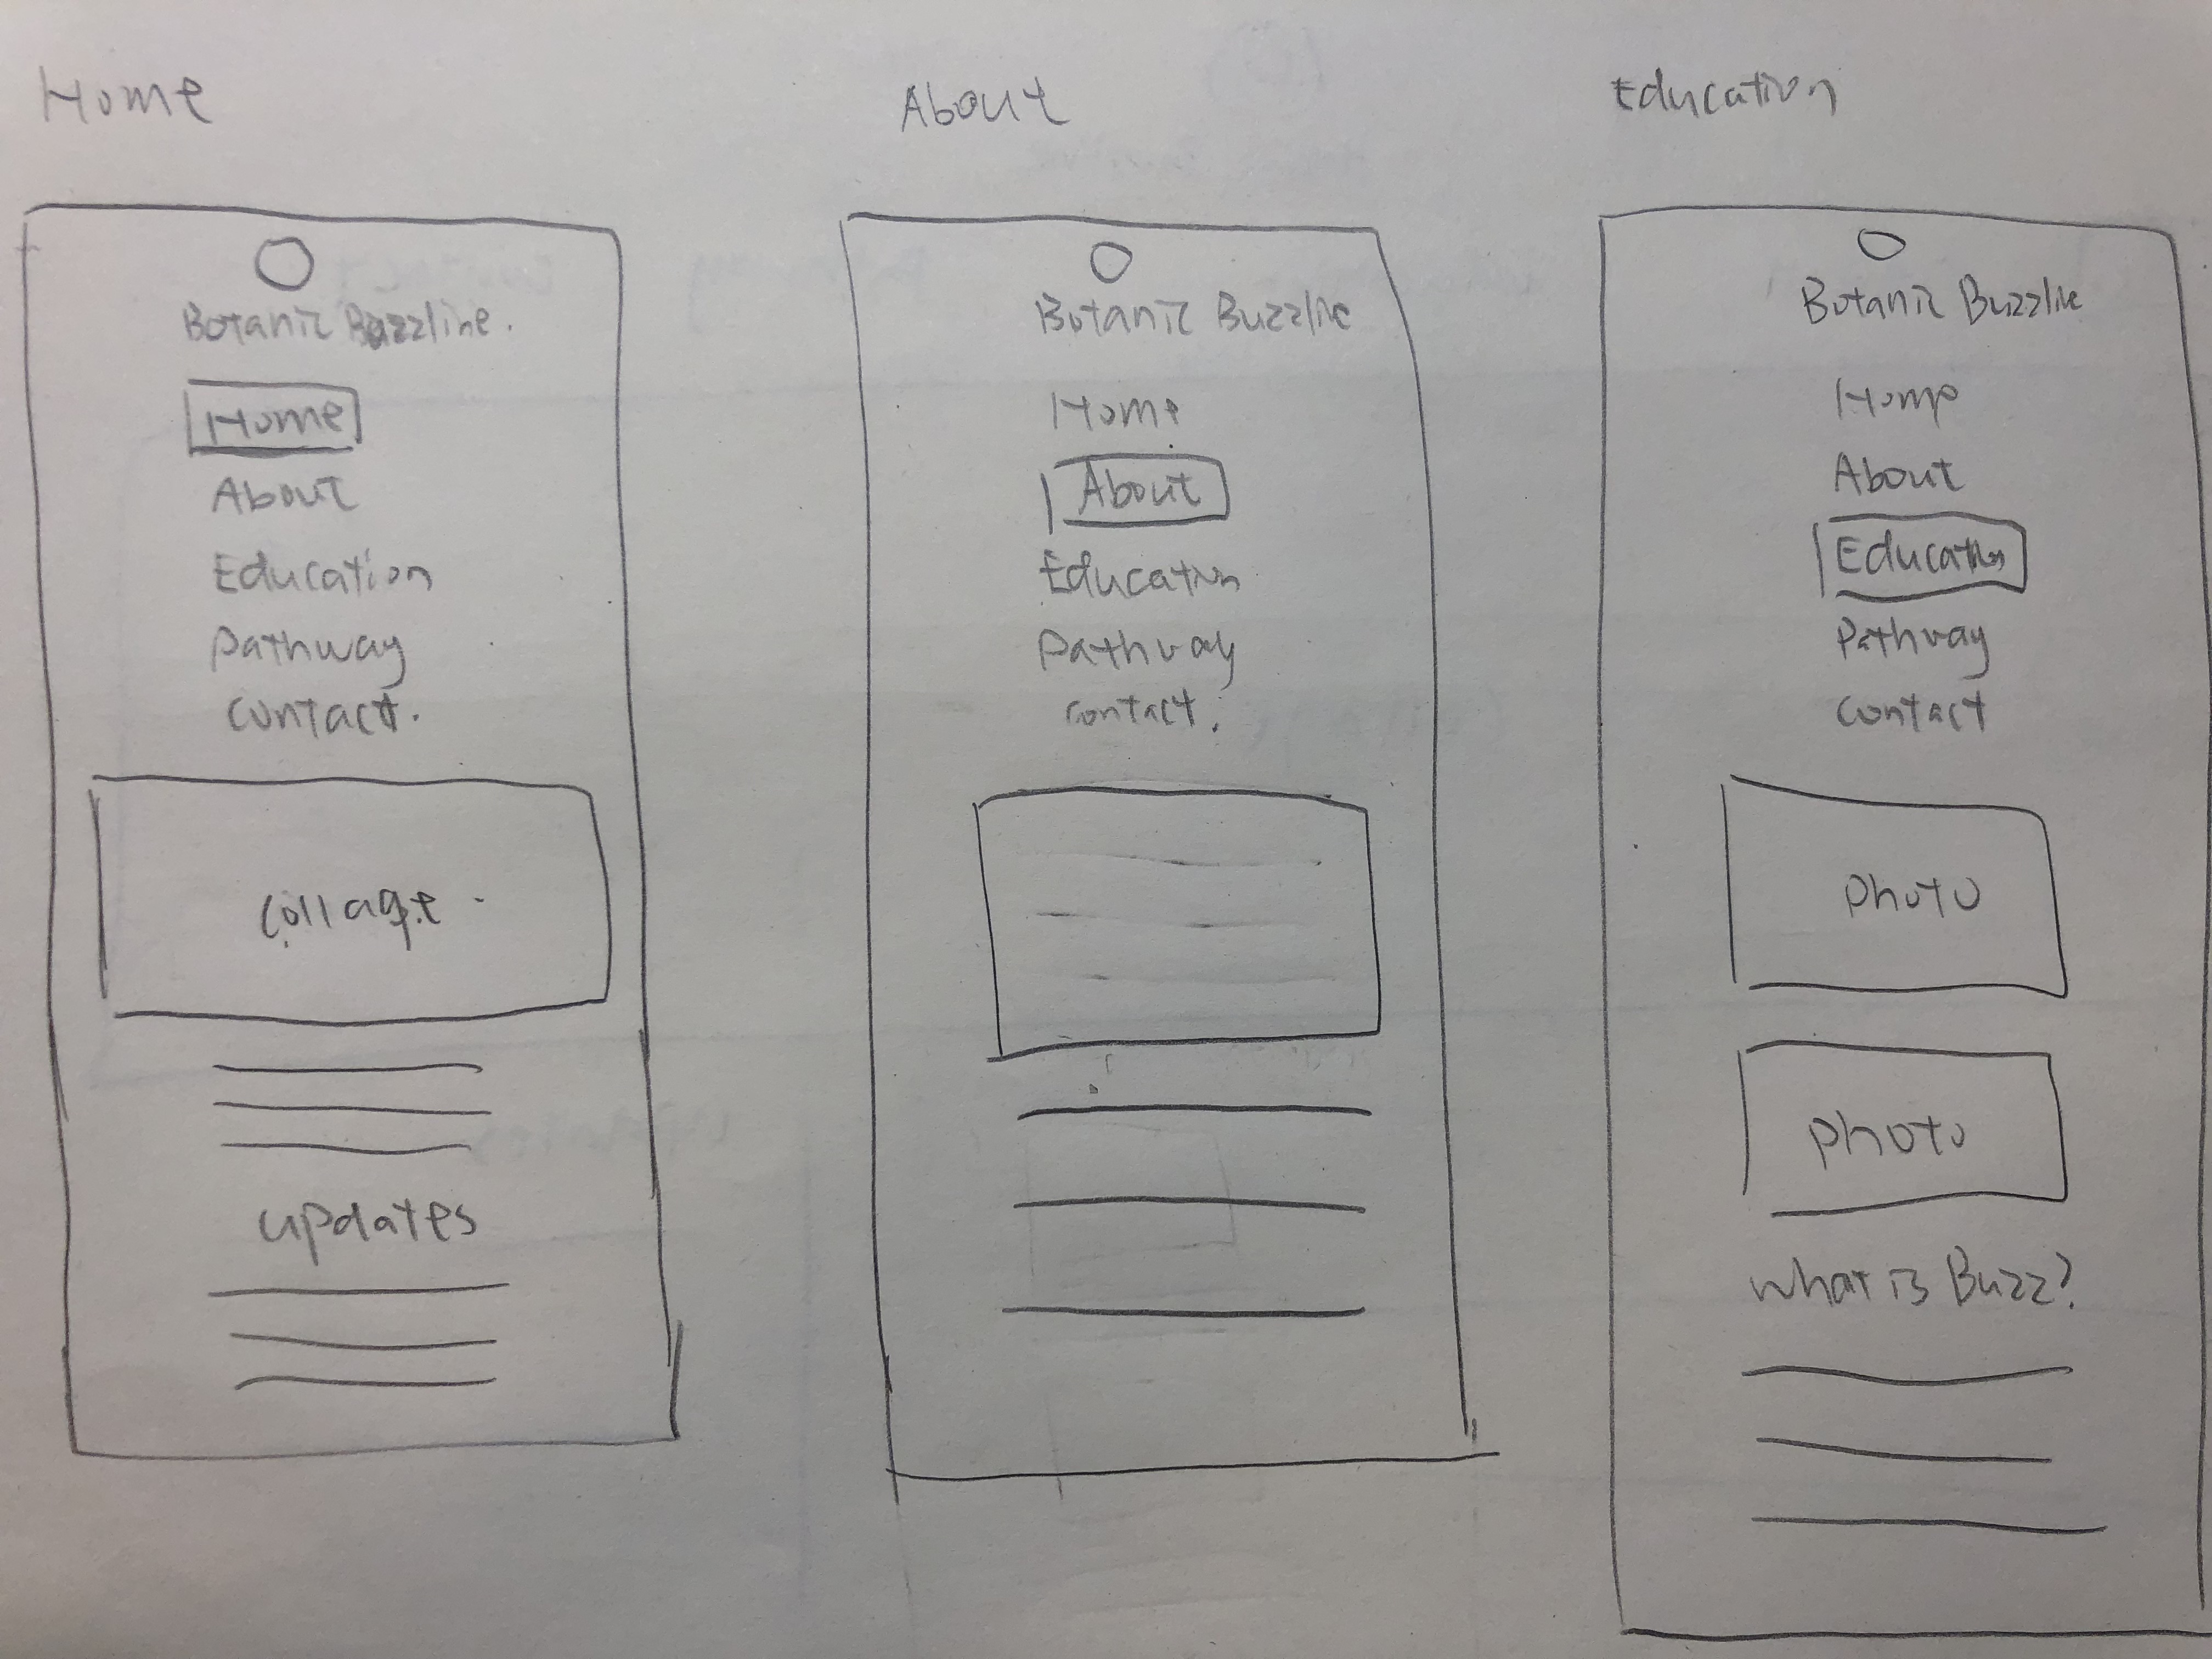 Home
Botanic Buzzline.
Home
About
Education
Pathway
Contact.
Collage
Updates
About
Botanic Buzzline
Home
About
Education
Pathway
Contact.
Education
Botanic Buzzline
Home
About
Education
Pathway
Contact
Photo
Photo
What is Buzz?